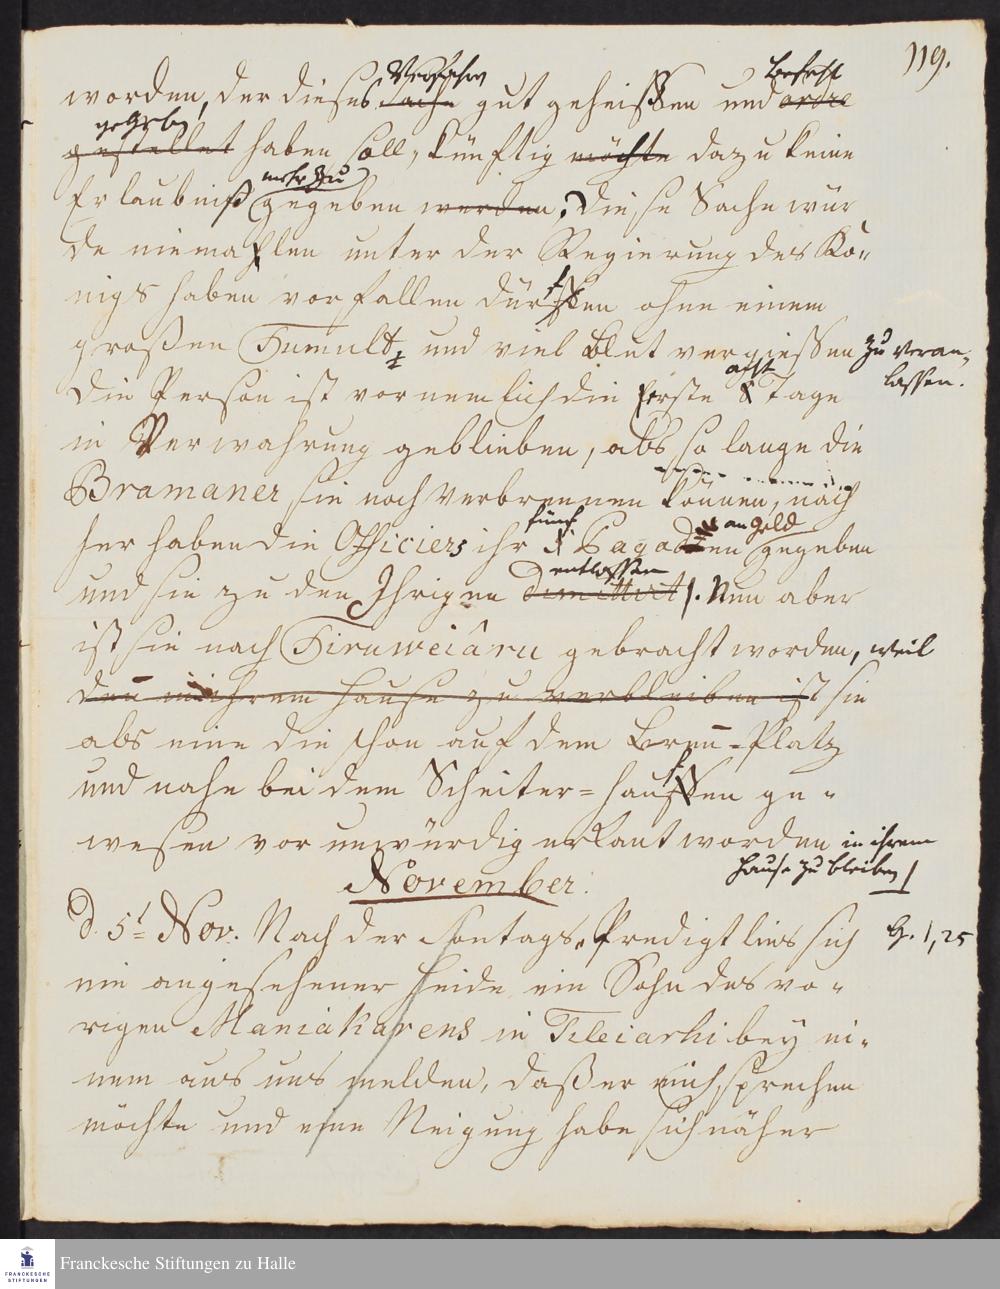 119.
worden, der dieses ~~Sache~~ Verfahren gut geheissen und ~~ordre~~ Befehl
~~gestellet~~ gegeben haben soll, künftig ~~möchte~~ dazu keine
Erlaubniß mehr zu gegeben ~~werden~~. Diese Sache wür
de niemahlen unter der Regierung des Kö-
nigs haben vorfallen dürffen ohne einem
großen Tumult und viel Blut vergiessen zu veran-
lassen.
Die Person ist vornemlich die erste acht Tage
in Verwahrung geblieben, als so lange die
Bramaner sie noch verbrennen können, nach
her haben die Officiers ihr fünf Pagoden an Geld gegeben
und sie zu den Ihrigen ~~dimittirt~~ entlassen. Nun aber
ist sie nach Tiruweiâru gebracht worden, weil
~~den in ihrem Hause zu verbleiben ist~~ sie
als eine die schon auf dem Bren̅-Platz
und nahe bei dem Scheiter-hauffen ge-
wesen vor unwürdig erkant worden in ihrem
Hause zu bleiben
November.
d. 5t Nov. Nach der Sontags-Predigt lies sich
G. 1, 25
ein angesehener Heide ein Sohn des vo-
rigen Maniakarens in Tileiarhi bey ei-
nem aus uns melden, daß er mich sprechen
möchte und eine Neigung habe sich näher
Franckesche Stiftungen zu Halle
FRANCKESCHE
STIFTUNGEN